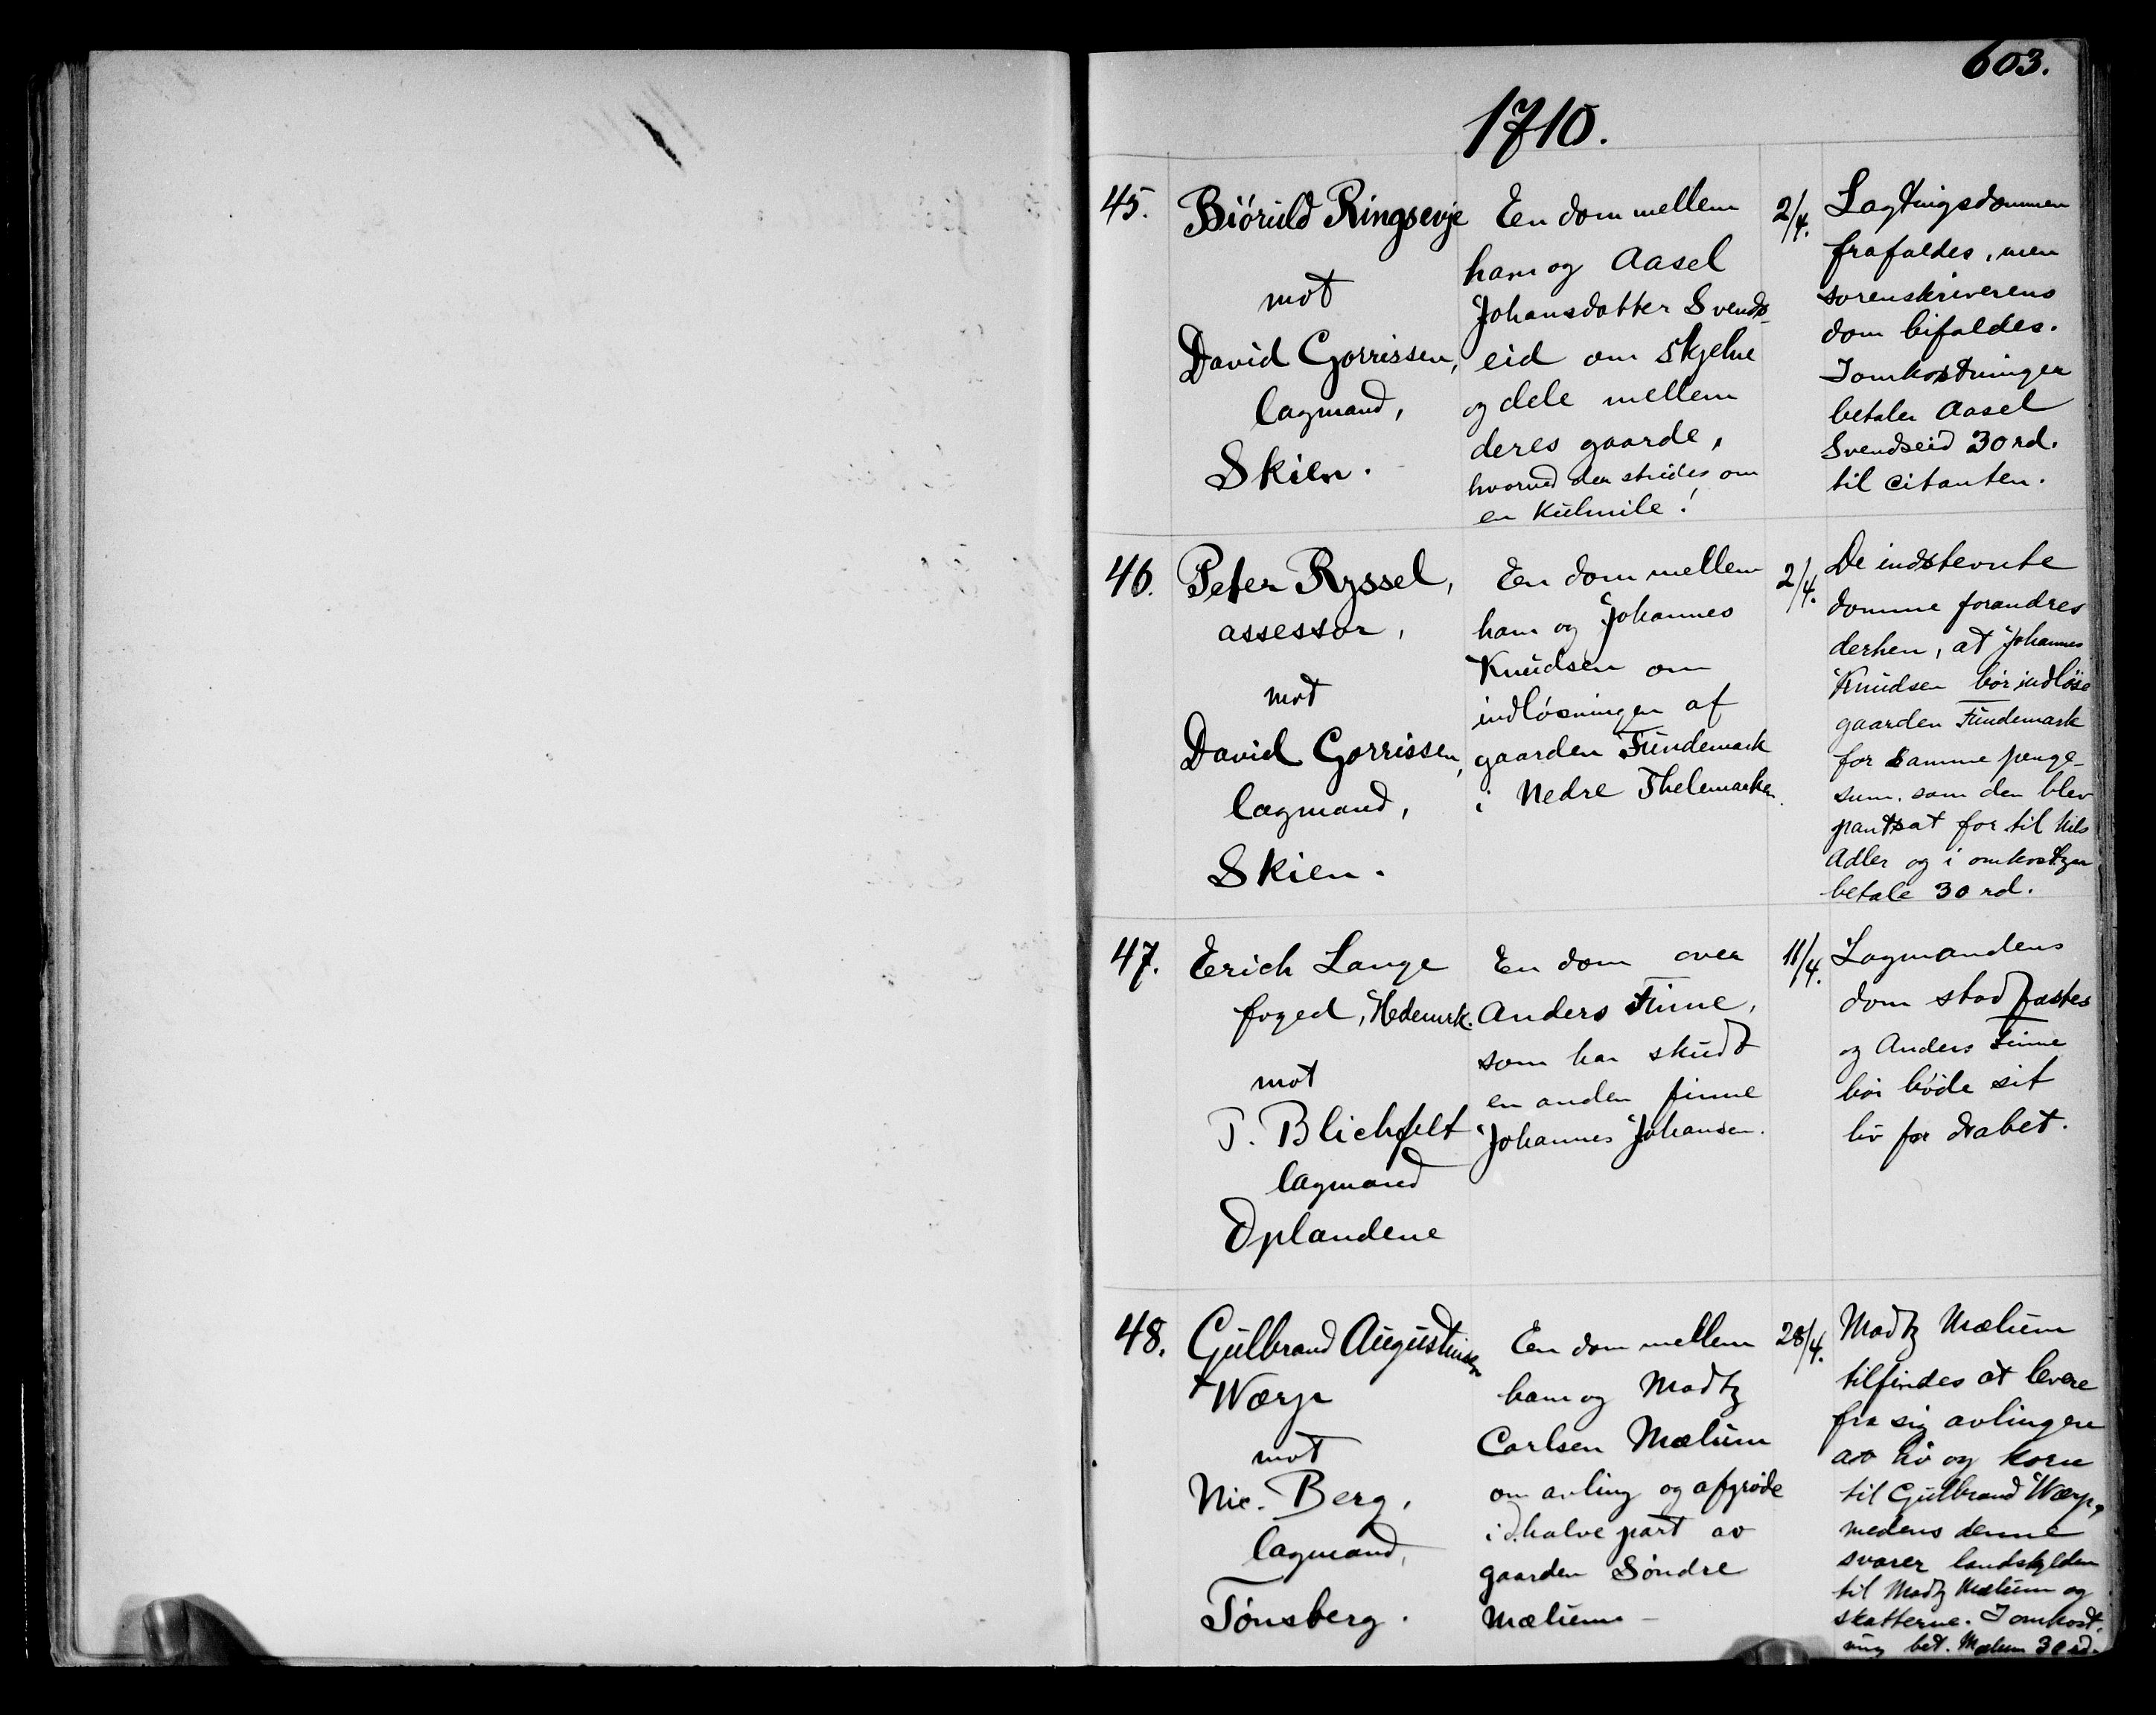 603.
1710.
45.
Biöruld Ringsevje
mot
David Gorrissen,
lagmand,
Skien.
En dom mellem
ham og Aasel
Johansdatter Svends-
eid om skjelne
og dele mellem
deres gaarde,
hvorved der strides om
en kulmile!
2/4.
Lagtingsdommen
frafaldes, men
sorenskriverens
dom bifaldes.
I omkostninger
betaler Aasel
Svendseid 30 rd.
til citanten.
46.
Peter Ryssel,
assessor,
mot
David Gorrissen,
lagmand,
Skien.
En dom mellem
ham og Johannes
Knudsen om
indløsningen af
gaarden Fundemark
i Nedre Thelemarken.
2/4.
De indstevnte
domme forandres
derhen, at Johannes
Knudsen bør indløse
gaarden Fundemark
for samme penge-
sum. som den blev
pantsat for til Nils
Adler og i omkostgr
betale 30 rd.
47.
Erich Lange
foged, Hedemrk.
mot
P. Blichfelt
lagmand
Oplandene
En dom over
Anders Finne,
som har skudt
en anden finne
Johannes Johansen.
11/4.
Lagmandens
dom stadfæstes
og Anders Finne
bør bøde sit
liv for drabet.
48.
Gulbrand Augustinsen
Wærp
mot
Nic. Berg,
lagmand,
Tönsberg.
En dom mellem
ham og Madtz
Carlsen Mælum
om avling og afgrøde
i d. halve part av
gaarden Söndre
Mælum-
28/4.
Madtz Mælum
tilfindes at levere
fra sig avlingen
av hö og korn
til Gulbrand Wærp,
medens denne
svarer landskylden
til Madtz Mælum og
skatterne. I omkost.
ning bet. Mælum 30 rd.